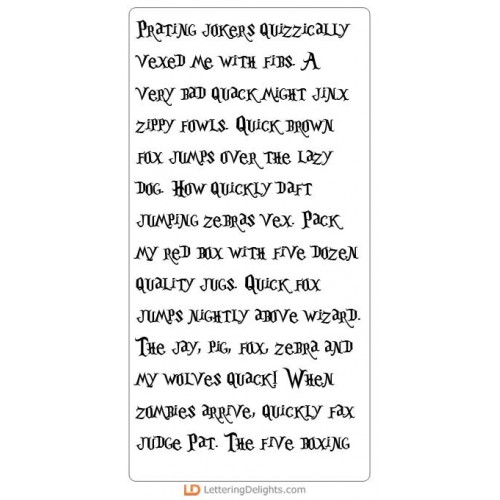 Prating jokers quizzically
vexed me with fibs. A
very bad quack might jinx
zippy fowls. Quick brown
fox jumps over the lazy
dog. How quickly daft
jumping zebras vex. Pack
my red box with five dozen
quality jugs. Quick fox
jumps nightly above wizard.
The jay, pig, fox, zebra and
my wolves quack! When
zombies arrive, quickly fax
judge Pat. The five boxing
LD LetteringDelights.com